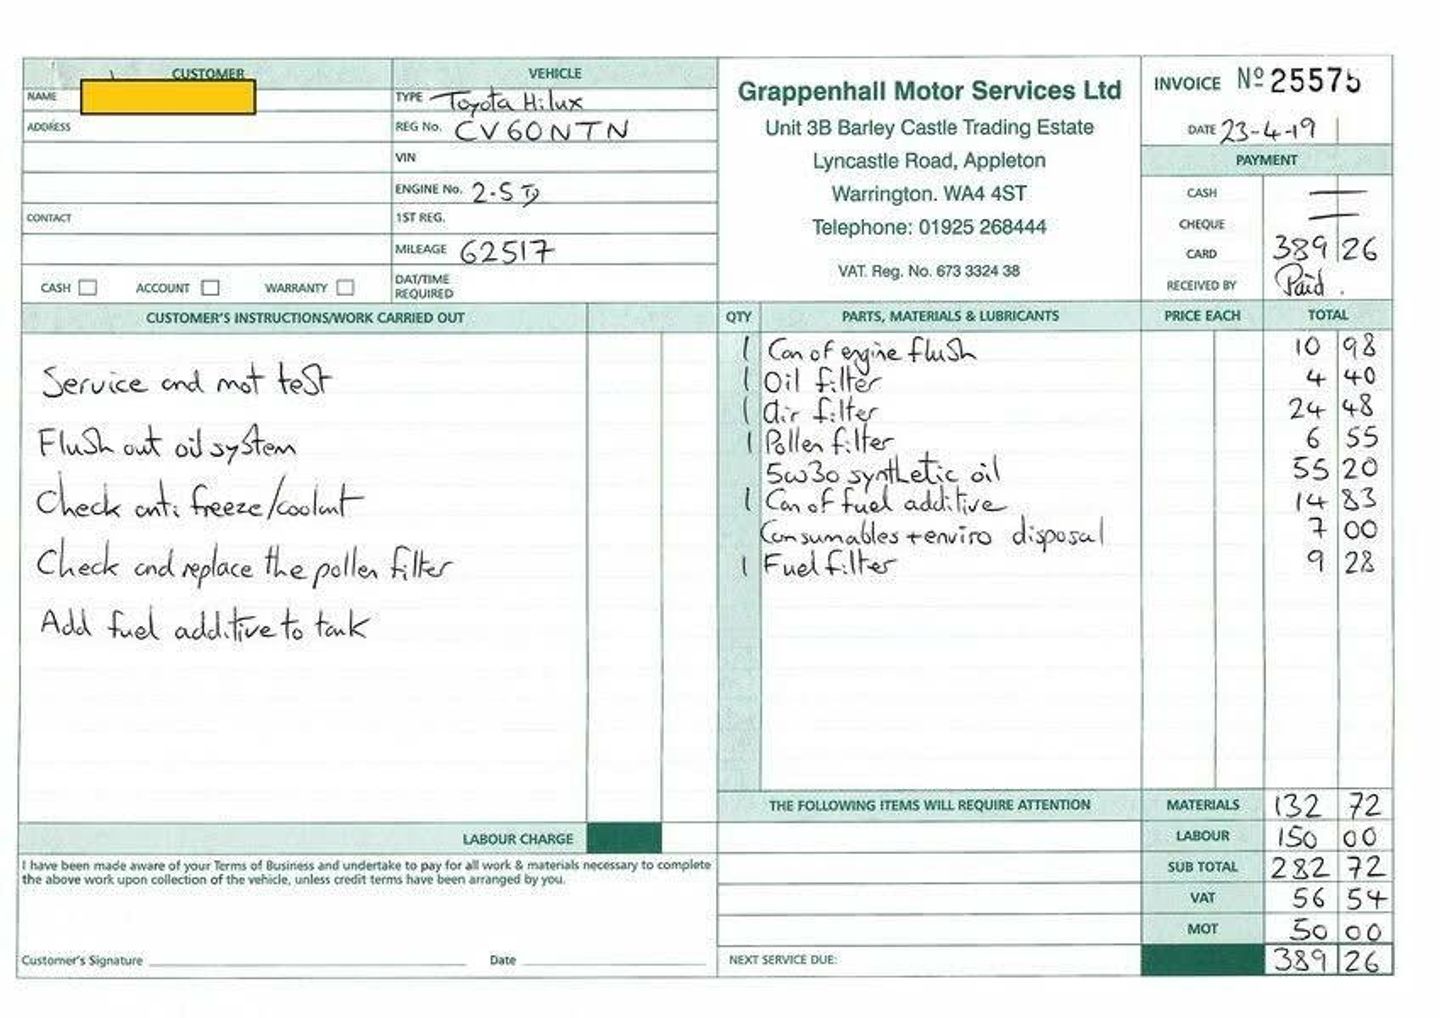 CUSTOMER
NAME
ADDRESS
CONTACT
CASH ACCOUNT WARRANTY
VEHICLE
TYPE Toyota Hilux
REG No. CV60NTN
VIN
ENGINE No. 2.5 D
1ST REG.
MILEAGE 62517
DAT/TIME
REQUIRED
Grappenhall Motor Services Ltd
Unit 3B Barley Castle Trading Estate
Lyncastle Road, Appleton
Warrington. WA4 4ST
Telephone: 01925 268444
VAT. Reg. No. 673 3324 38
INVOICE Nº 25575
DATE 23-4-19
PAYMENT
CASH —
CHEQUE —
CARD 389 26
RECEIVED BY Paid.
CUSTOMER'S INSTRUCTIONS/WORK CARRIED OUT
Service and mot test
Flush out oil system
Check anti freeze/coolant
Check and replace the pollen filter
Add fuel additive to tank
LABOUR CHARGE
I have been made aware of your Terms of Business and undertake to pay for all work & materials necessary to complete
the above work upon collection of the vehicle, unless credit terms have been arranged by you.
Customer's Signature Date
QTY PARTS, MATERIALS & LUBRICANTS PRICE EACH TOTAL
1 Can of engine flush 10 98
1 Oil filter 4 40
1 Air filter 24 48
1 Pollen filter 6 55
5w30 synthetic oil 55 20
1 Can of fuel additive 14 83
Consumables + enviro disposal 7 00
1 Fuel filter 9 28
THE FOLLOWING ITEMS WILL REQUIRE ATTENTION
MATERIALS 132 72
LABOUR 150 00
SUB TOTAL 282 72
VAT 56 54
MOT 50 00
NEXT SERVICE DUE: 389 26